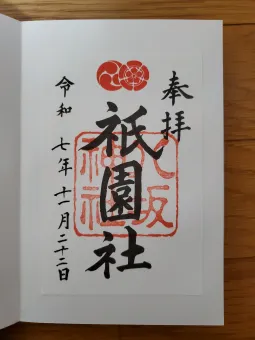 奉拝
祇園社
八坂神社
令和七年十一月二十二日